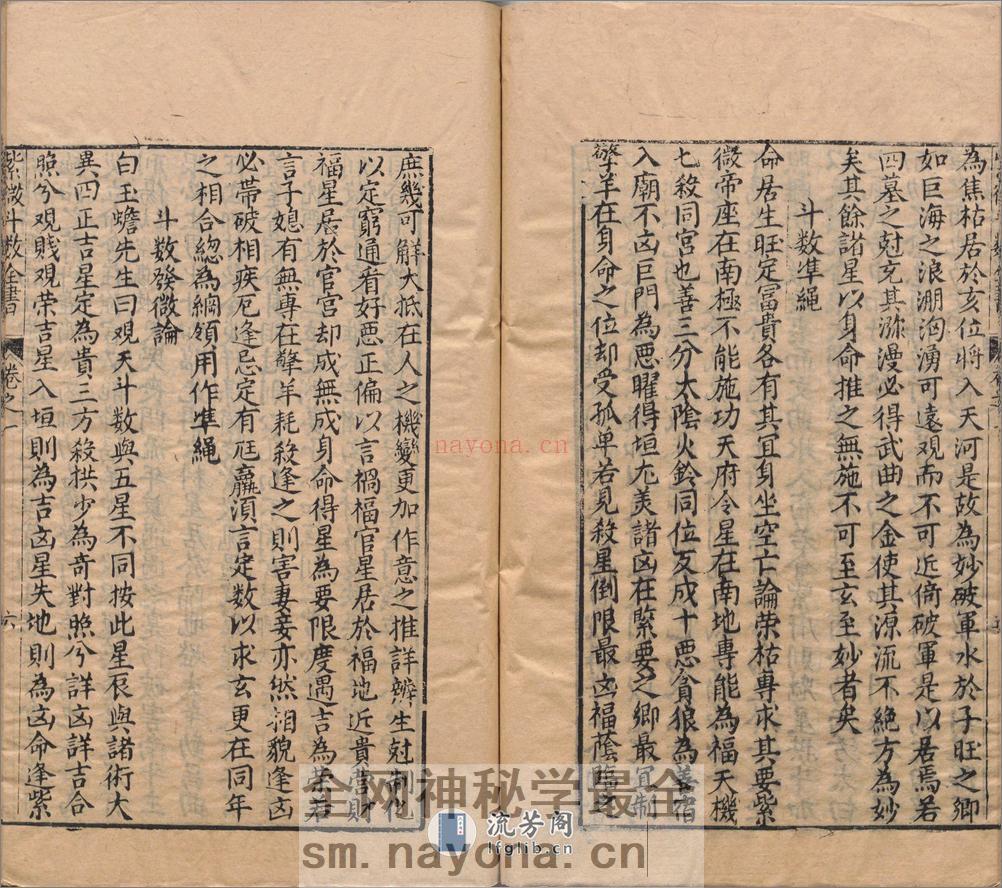 為焦枯居於亥位將入天河是故為妙破軍水於子旺之鄉
如巨海之浪淜洶湧可遠觀而不可近倚破軍是以居焉若
四墓之尅充其瀰漫必得武曲之金使其源流不絕方為妙
矣其餘諸星以身命推之無施不可至玄至妙者矣
斗數準繩
命居生旺定富貴各有其宜身坐空亡論荣枯專求其要紫
微帝座在南極不能施功天府令星在南地專能為福天機
七殺同宮也善三分太陰火鈴同位反成十惡貪狼為善宿
入廟不凶巨門為惡曜得垣尤美諸凶在緊要之鄉最宜制
擎羊在身命之位却受孤单若見殺星倒限最凶福蔭臨之
庶幾可解大抵在人之機變更加作意之推詳辨生尅制化
以定窮通看好惡正偏以言禍福官星居於福地近貴营財
福星居於官宮却成無成身命得星為要限度遇吉為荣若
言子媳有無專在擎羊耗殺逢之則害妻妾亦然相貌逢凶
必帶破相疾厄逢忌定有尫羸須言定数以求玄更在同年
之相合緫為綱領用作準繩
斗數發微論
白玉蟾先生曰观天斗数與五星不同按此星辰與諸術大
異四正吉星定為貴三方殺拱少為奇對照兮詳凶詳吉合
照兮观賎观荣吉星入垣則為吉凶星失地則為凶命逢紫
紫微斗数全書
卷之一
六
nayona.cn
全网神秘学最全
sm.nayona.cn
流芳阁
lfglib.cn